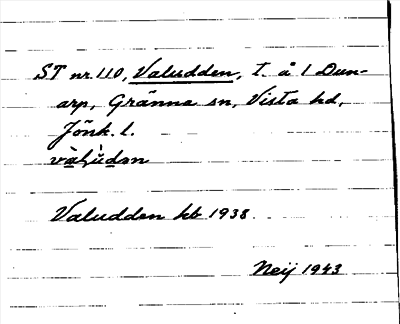 ST nr. 110, Valudden, t. å 1 Dun-
arp, Gränna sn, Vista hd,
Jönk. l.
Valudden kb 1938.
Neij 1943